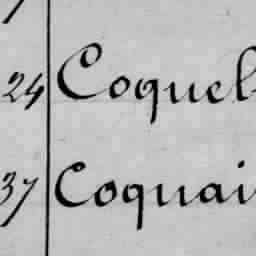 24 Coquel
37 Coquai